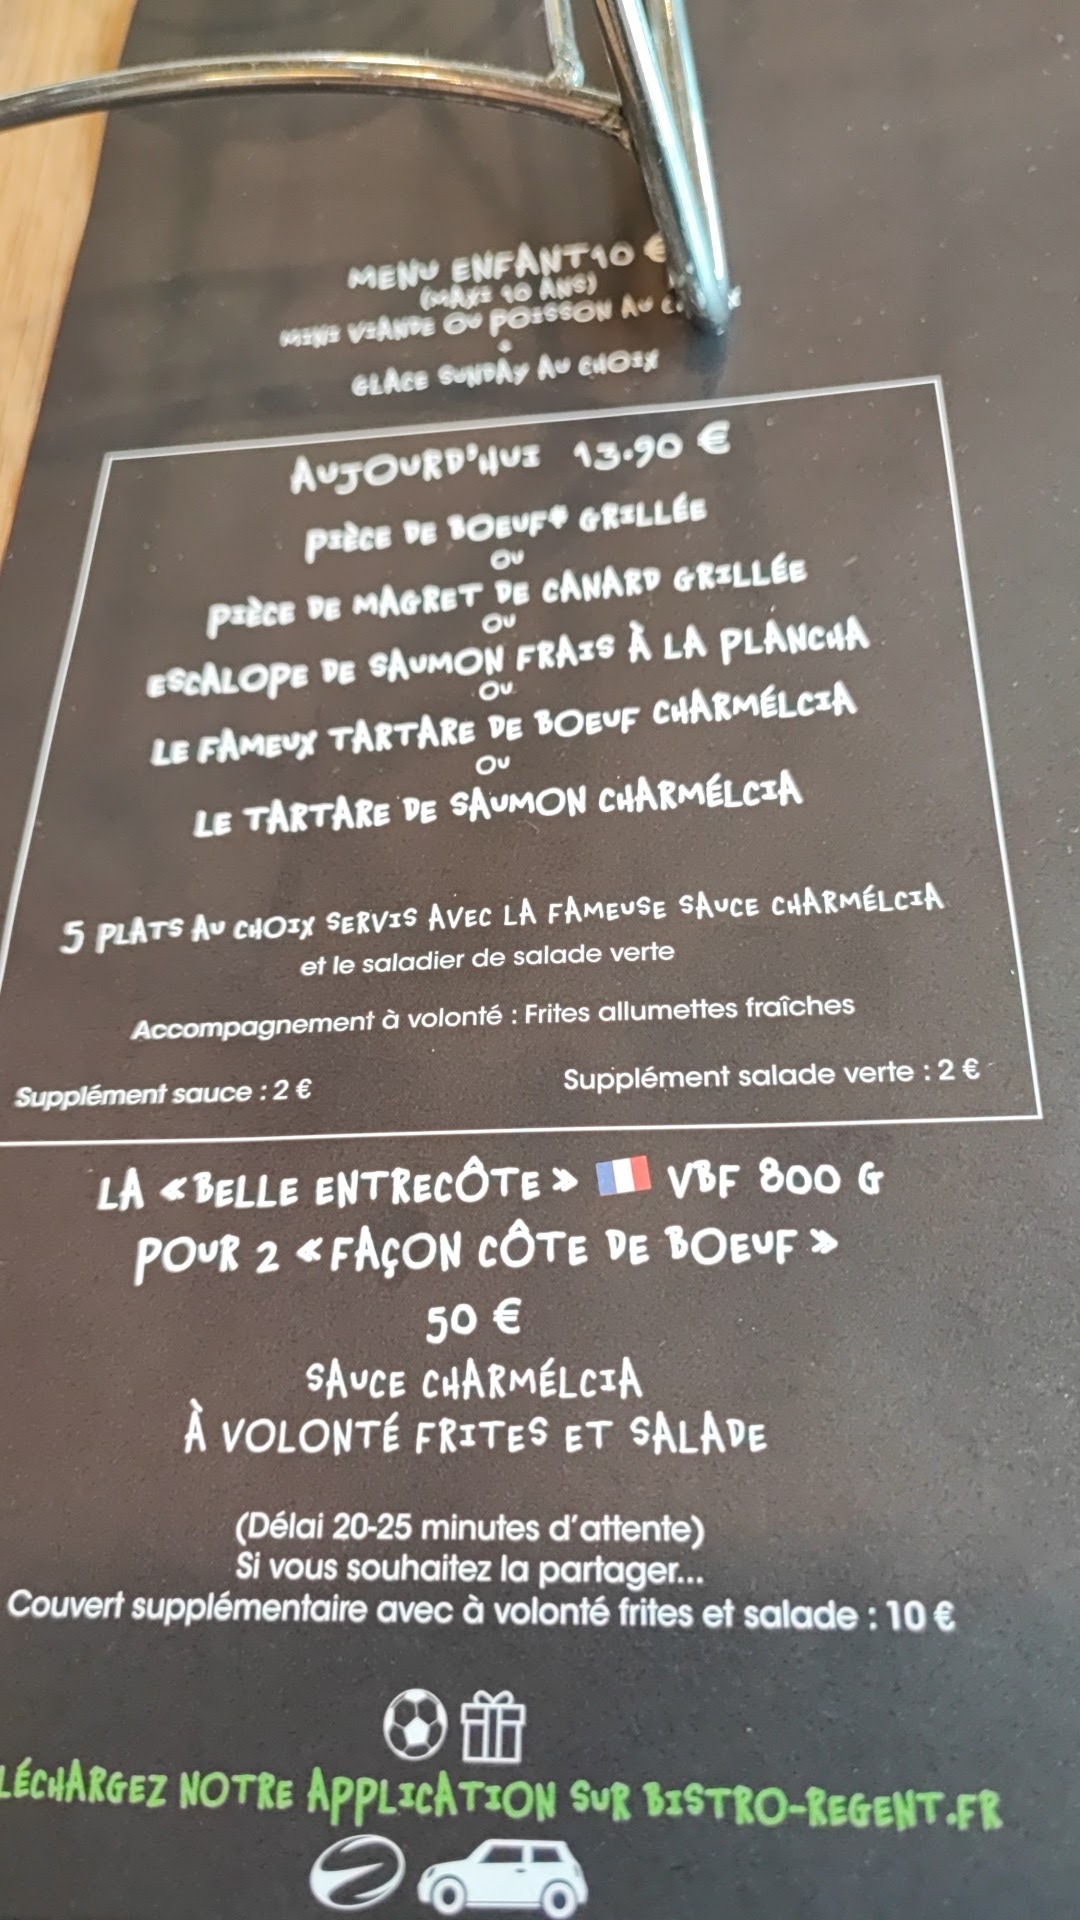 MENU ENFANT 10 €
(MAXI 10 ANS)
MINI VIANDE OU POISSON AU
+
GLACE SUNDAY AU CHOIX
AUJOURD'HUI 13.90 €
PIÈCE DE BOEUF* GRILLÉE
OU
PIÈCE DE MAGRET DE CANARD GRILLÉE
OU
ESCALOPE DE SAUMON FRAIS À LA PLANCHA
OU
LE FAMEUX TARTARE DE BOEUF CHARMÉLCIA
OU
LE TARTARE DE SAUMON CHARMÉLCIA
5 PLATS AU CHOIX SERVIS AVEC LA FAMEUSE SAUCE CHARMÉLCIA
et le saladier de salade verte
Accompagnement à volonté : Frites allumettes fraîches
Supplément sauce : 2 € Supplément salade verte : 2 €
LA « BELLE ENTRECÔTE » VBF 800 G
POUR 2 « FAÇON CÔTE DE BOEUF »
50 €
SAUCE CHARMÉLCIA
À VOLONTÉ FRITES ET SALADE
(Délai 20-25 minutes d'attente)
Si vous souhaitez la partager...
Couvert supplémentaire avec à volonté frites et salade : 10 €
LÉCHARGEZ NOTRE APPLICATION SUR BISTRO-REGENT.FR